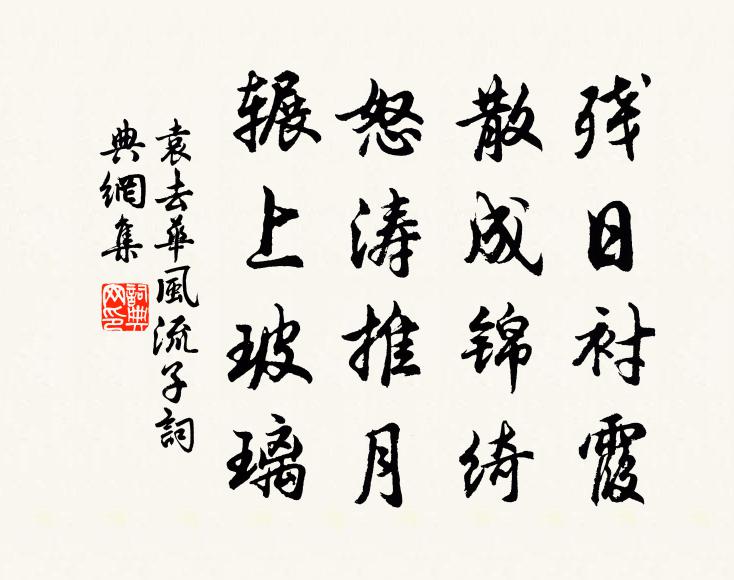 残日衬霞
散成锦绮
怒涛推月
辗上玻璃
袁去华風流子詞
典網集
詞典网印